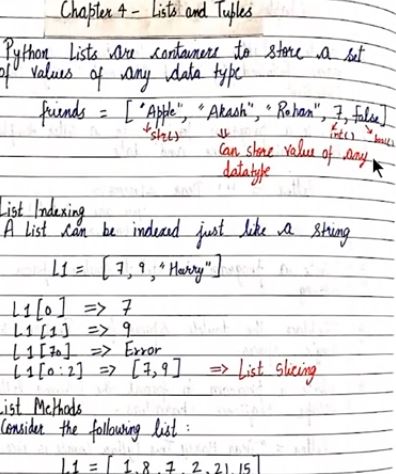 Chapter 4 - Lists and Tuples
Python Lists are containers to store a set
of values of any data type
friends = [ "Apple", "Akash", "Rohan", 7, false]
str() int()
Can store value of any
datatype
List Indexing
A List can be indexed just like a string
L1 = [ 7, 9, "Harry" ]
L1 [0] => 7
L1 [1] => 9
L1 [70] => Error
L1 [0:2] => [7,9] => List slicing
List Methods
Consider the following list :
L1 = [ 1, 8, 7, 2, 21, 15]